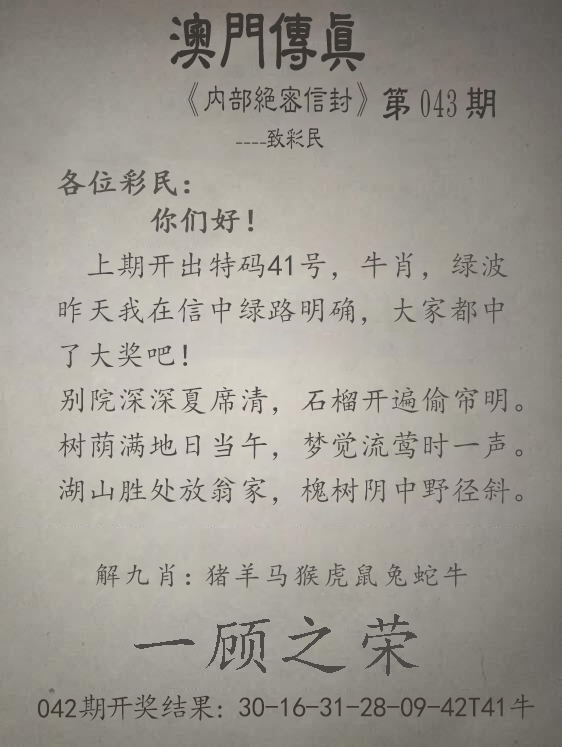 澳門傳眞
《内部絕密信封》第043期
----致彩民
各位彩民：
你们好！
上期开出特码41号，牛肖，绿波
昨天我在信中绿路明确，大家都中
了大奖吧！
别院深深夏席清，石榴开遍偷帘明。
树荫满地日当午，梦觉流莺时一声。
湖山胜处放翁家，槐树阴中野径斜。
解九肖：猪羊马猴虎鼠兔蛇牛
一顾之荣
042期开奖结果：30-16-31-28-09-42T41牛